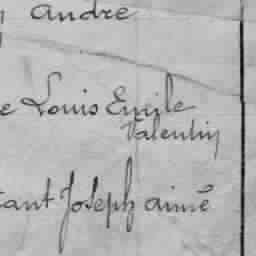 andré
e Louis Emile
Valentin
tant Joseph aimé